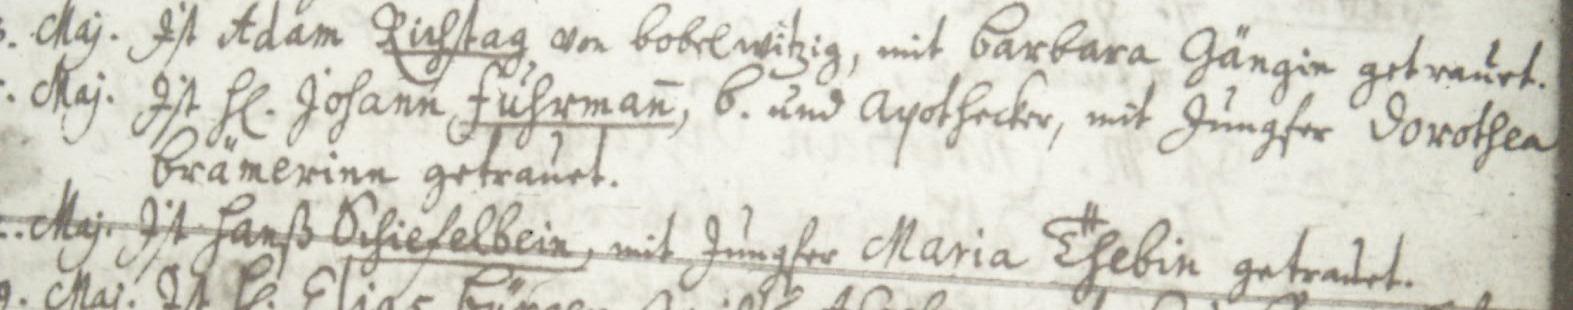 . Maj. Ist Adam Richtag von bobelwitzig, mit barbara Gängin getrauet.
. Maj. Ist H. Johann Fuhrman̅, b. und Apothecker, mit Jungfer Dorothea
brämerinn getrauet.
. Maj. Ist Hanß Schiefelbein, mit Jungfer Maria Thebin getrauet.
. Maj. Ist H. Elias